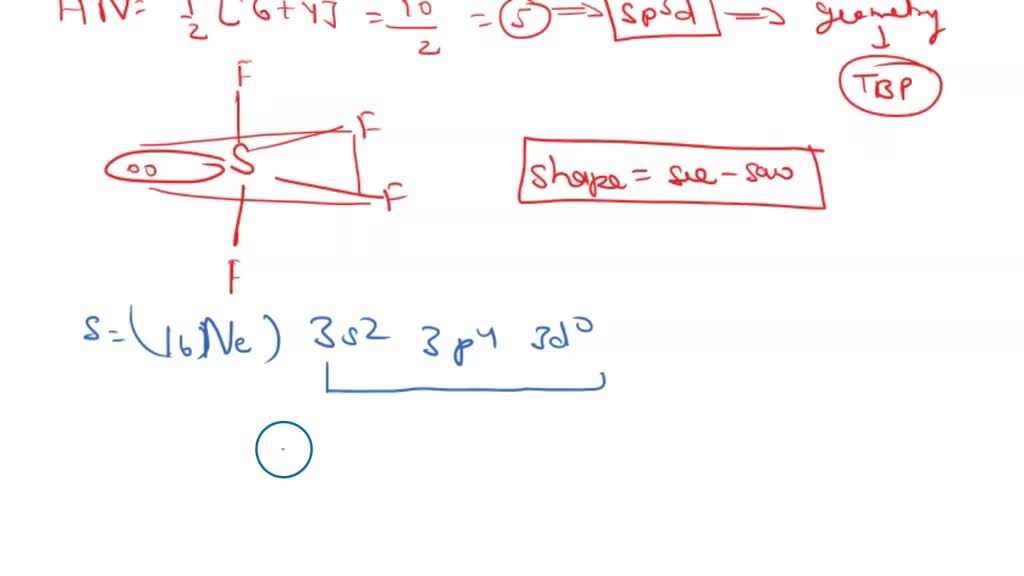 HN= 1/2 [6+4] = 10/2 = 5 ⟹ sp3d ⟹ geometry
↓
TBP
F
F
S
F
F
shape = see-saw
S = (16Ne) 3s2 3p4 3d0